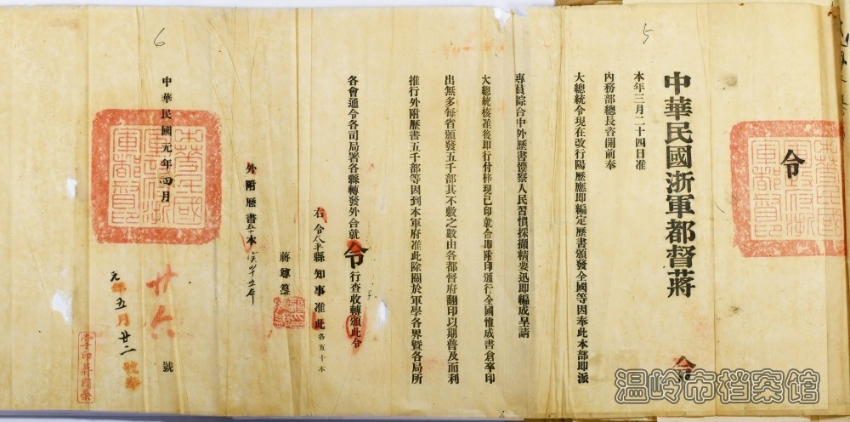 5
令
中華民國浙軍都督蔣 令
本年三月二十四日准
內務部總長咨開前奉
大總統令現在改行陽歷應即編定歷書頒發全國等因奉此本部即派
專員綜合中外歷書體察人民習慣採擷精要迅即編成呈請
大總統核准後即行付梓現已印就合即附印通行全國惟成書倉卒印
出無多每省頒發五千部其不敷之數由各都督府翻印以期普及而利
推行外附歷書五千部等因到本軍府准此除關於軍學各界暨各局所
各會通令各司局署各縣轉發外合就令行查收轉頒此令
右令 縣知事准此
各五十本
蔣尊簋
外附歷書 本
中華民國元年四月
廿六 號
元年五月廿二
6
温岭市档案馆